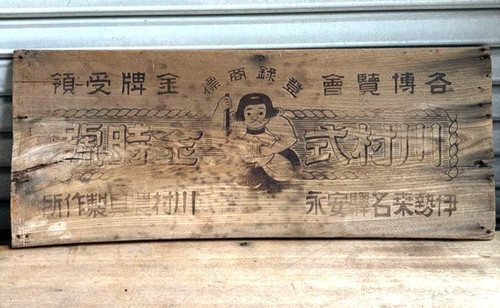 各博覽會登録商標金牌受領
川村式金時
伊勢桑名驛安永川村農具製作所